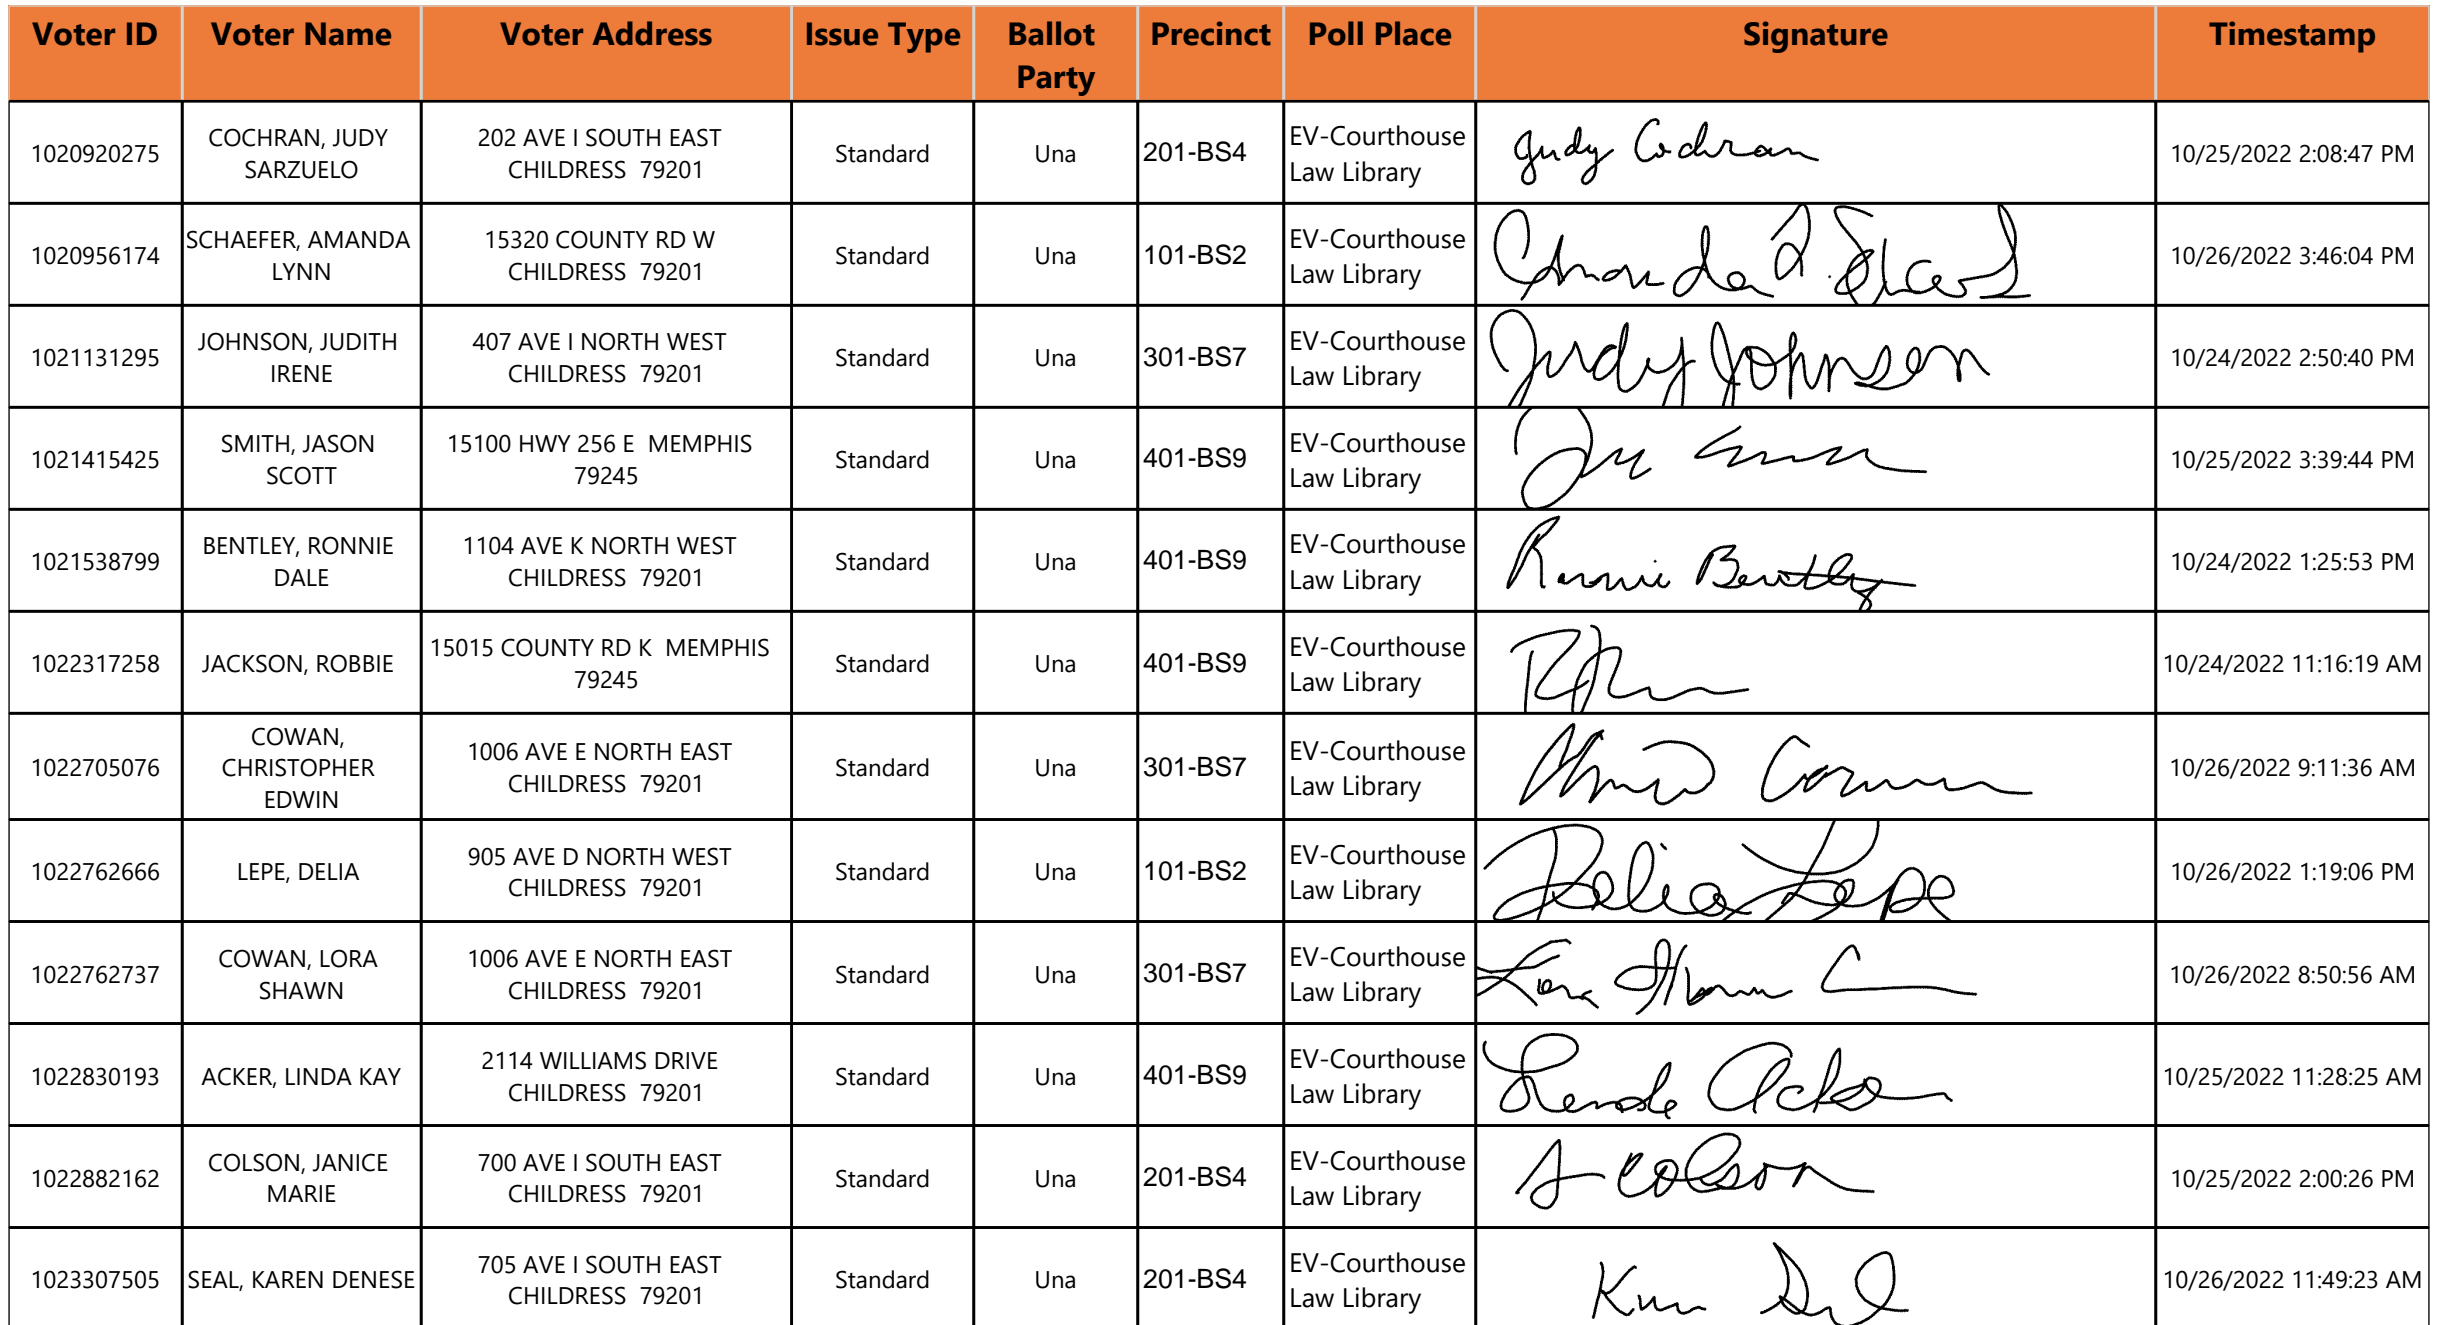 Voter ID Voter Name Voter Address Issue Type Ballot Party Precinct Poll Place Signature Timestamp
1020920275 COCHRAN, JUDY SARZUELO 202 AVE I SOUTH EAST CHILDRESS 79201 Standard Una 201-BS4 EV-Courthouse Law Library Judy Cochran 10/25/2022 2:08:47 PM
1020956174 SCHAEFER, AMANDA LYNN 15320 COUNTY RD W CHILDRESS 79201 Standard Una 101-BS2 EV-Courthouse Law Library Amanda L. 10/26/2022 3:46:04 PM
1021131295 JOHNSON, JUDITH IRENE 407 AVE I NORTH WEST CHILDRESS 79201 Standard Una 301-BS7 EV-Courthouse Law Library Judy Johnson 10/24/2022 2:50:40 PM
1021415425 SMITH, JASON SCOTT 15100 HWY 256 E MEMPHIS 79245 Standard Una 401-BS9 EV-Courthouse Law Library 10/25/2022 3:39:44 PM
1021538799 BENTLEY, RONNIE DALE 1104 AVE K NORTH WEST CHILDRESS 79201 Standard Una 401-BS9 EV-Courthouse Law Library Ronnie Bentley 10/24/2022 1:25:53 PM
1022317258 JACKSON, ROBBIE 15015 COUNTY RD K MEMPHIS 79245 Standard Una 401-BS9 EV-Courthouse Law Library 10/24/2022 11:16:19 AM
1022705076 COWAN, CHRISTOPHER EDWIN 1006 AVE E NORTH EAST CHILDRESS 79201 Standard Una 301-BS7 EV-Courthouse Law Library 10/26/2022 9:11:36 AM
1022762666 LEPE, DELIA 905 AVE D NORTH WEST CHILDRESS 79201 Standard Una 101-BS2 EV-Courthouse Law Library Delia Lepe 10/26/2022 1:19:06 PM
1022762737 COWAN, LORA SHAWN 1006 AVE E NORTH EAST CHILDRESS 79201 Standard Una 301-BS7 EV-Courthouse Law Library Lora Shawn 10/26/2022 8:50:56 AM
1022830193 ACKER, LINDA KAY 2114 WILLIAMS DRIVE CHILDRESS 79201 Standard Una 401-BS9 EV-Courthouse Law Library Linda Acker 10/25/2022 11:28:25 AM
1022882162 COLSON, JANICE MARIE 700 AVE I SOUTH EAST CHILDRESS 79201 Standard Una 201-BS4 EV-Courthouse Law Library Colson 10/25/2022 2:00:26 PM
1023307505 SEAL, KAREN DENESE 705 AVE I SOUTH EAST CHILDRESS 79201 Standard Una 201-BS4 EV-Courthouse Law Library 10/26/2022 11:49:23 AM